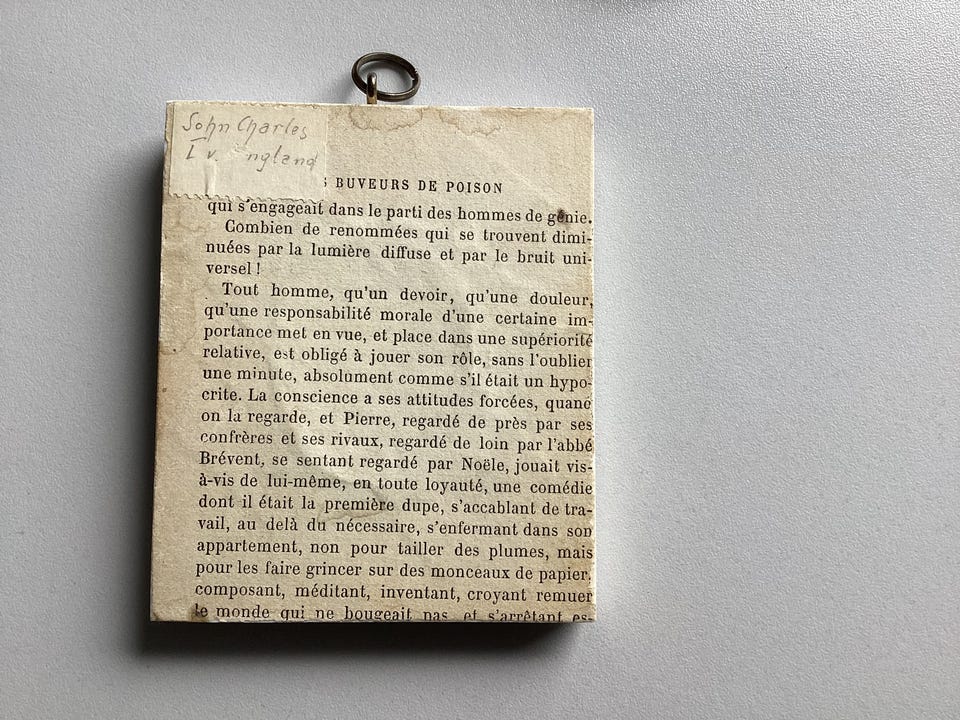 John Charles
I v. ngland
S BUVEURS DE POISON
qui s'engageait dans le parti des hommes de génie.
Combien de renommées qui se trouvent dimi-
nuées par la lumière diffuse et par le bruit uni-
versel !
Tout homme, qu'un devoir, qu'une douleur,
qu'une responsabilité morale d'une certaine im-
portance met en vue, et place dans une supériorité
relative, est obligé à jouer son rôle, sans l'oublier
une minute, absolument comme s'il était un hypo-
crite. La conscience a ses attitudes forcées, quand
on la regarde, et Pierre, regardé de près par ses
confrères et ses rivaux, regardé de loin par l'abbé
Brévent, se sentant regardé par Noële, jouait vis-
à-vis de lui-même, en toute loyauté, une comédie
dont il était la première dupe, s'accablant de tra-
vail, au delà du nécessaire, s'enfermant dans son
appartement, non pour tailler des plumes, mais
pour les faire grincer sur des monceaux de papier,
composant, méditant, inventant, croyant remuer
le monde qui ne bougeait pas, et s'arrêtant es-